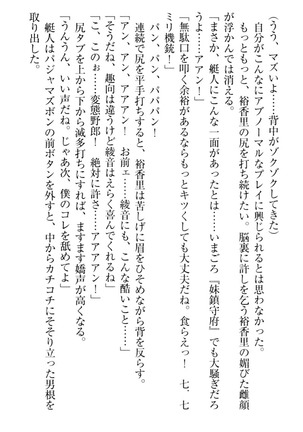 (うう、マズいよ……背中がゾクゾクしてきた)
自分がこんなにアブノーマルなプレイに興じられるとは思わなかった。
もっともっと、裕香里の尻を打ち続けたい。脳裏に許しを乞う裕香里の媚びた雌顔
が浮かんでは消える。
「まさか、艇人にこんな一面があったとは……いまごろ『妹鎮守府』でも大騒ぎだろ
うよ……アアン！」
「無駄口を叩く余裕があるならもっとキツくしても大丈夫だね。食らえっ！　七、七
ミリ機銃！」
パン、パン、パパパン！
連続で尻を平手打ちすると、裕香里は苦しげに眉をひそめながら背を反らす。
「アン、アン、アアアン！　お前ェ……綾音にも、こんな酷いこと……！」
「そうだね。趣向は違うけど綾音はえらく喜んでくれたかな」
「こ、このぉ……変態野郎！　絶対に許さ……アアアン！」
尻タブを上から下から滅多打ちにすれば、ますます嬌声が高くなる。
「うんうん、いい声だね。じゃあ次、僕のコレを舐めてよ」
艇人はパジャマズボンの前ボタンを外すと、中からカチコチにそそり立った男根を
取り出した。